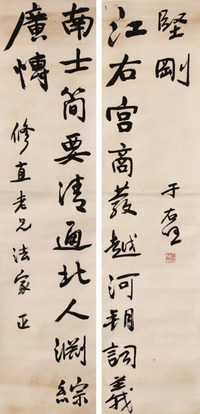 江右宮商發越河朔詞義
堅剛
于右任
南士簡要清通北人淵綜
廣愽
修直老兄法家正